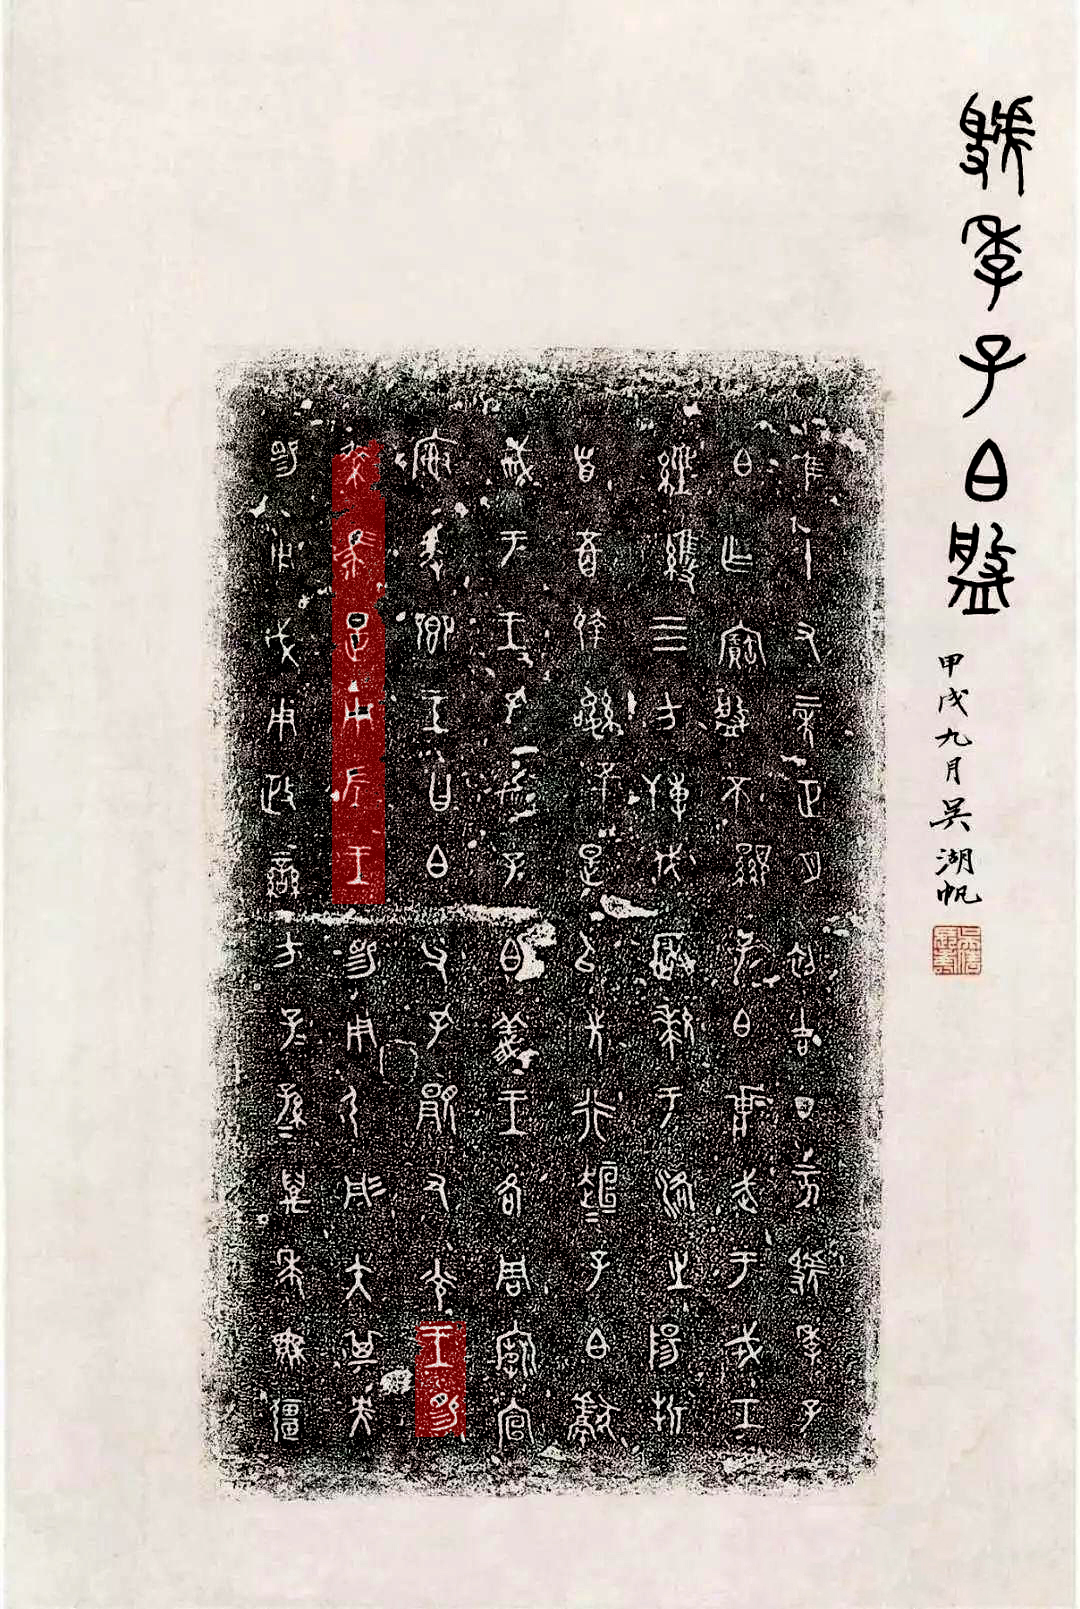 虢季子白盤
甲戌九月吳湖帆
隹十又二年正月初吉丁亥虢季子
白乍寶盤不顯子白壯武于戎工
經維四方搏伐玁狁于洛之陽折
首五百執訊五十是以先行桓=子白獻
馘于王王孔加子白義王各周廟宣
榭爰鄉王曰白父孔顯又光王賜
乘馬是用左王賜用弓彤矢其央
賜用戉用政蠻方子=孫=萬年無疆